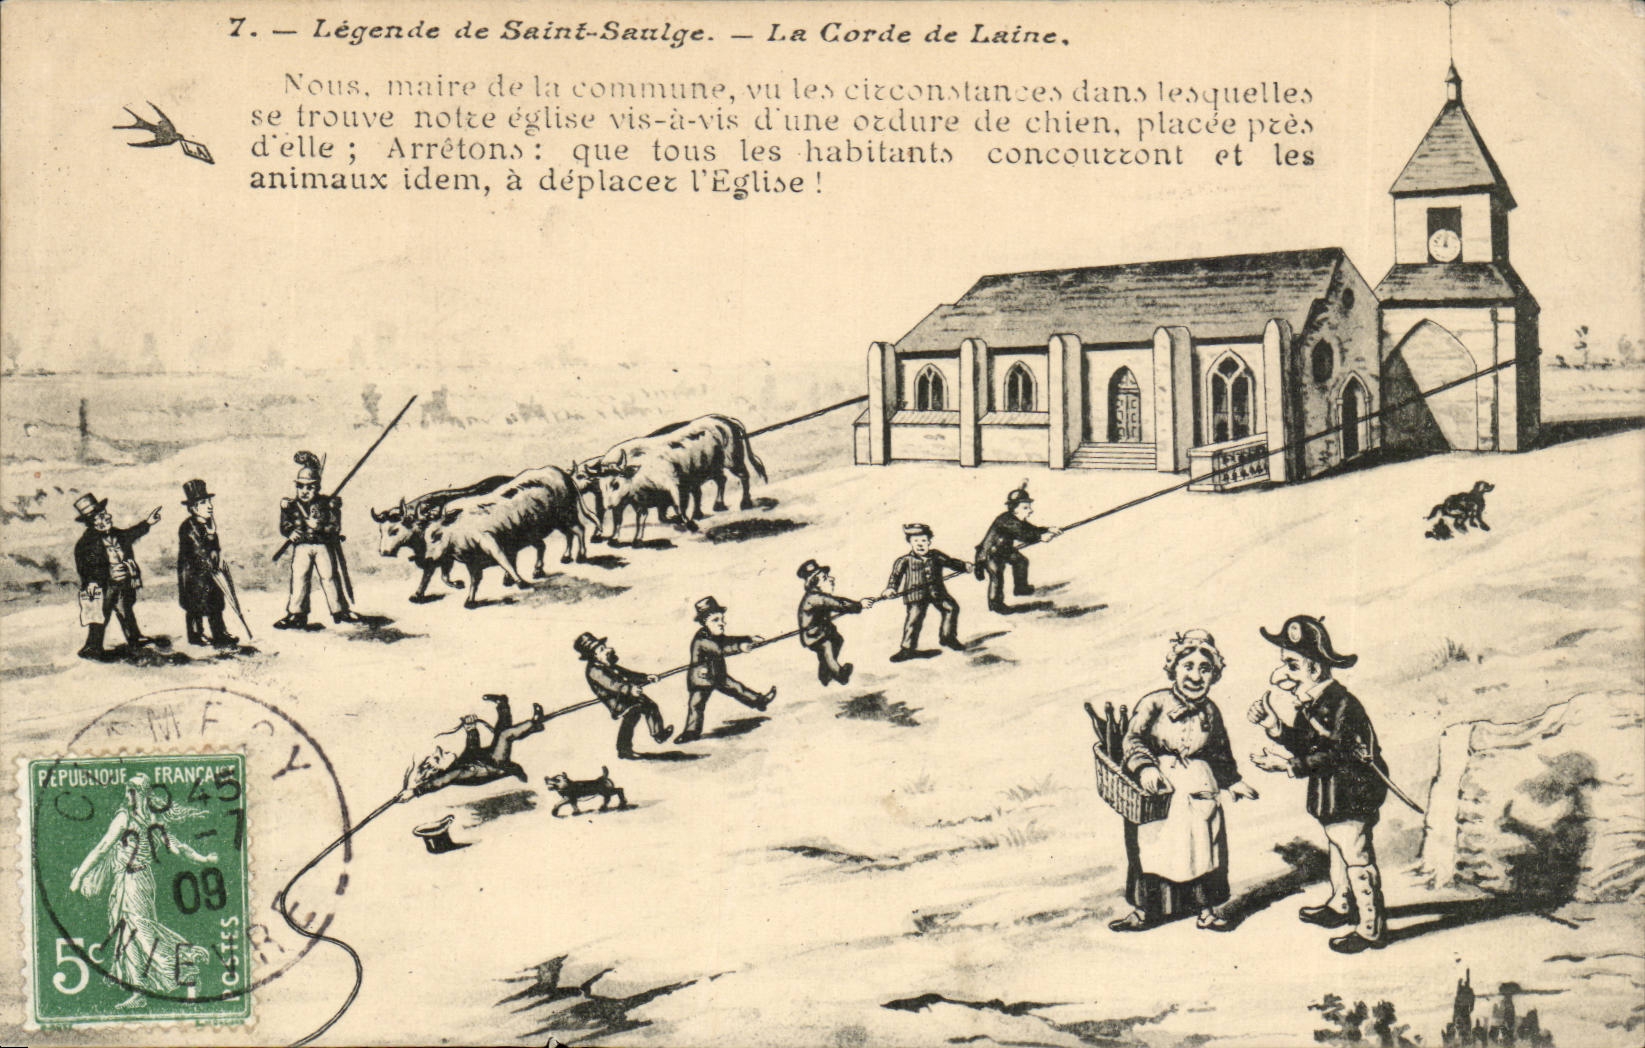 7. — Légende de Saint-Saulge. — La Corde de Laine.
Nous, maire de la commune, vu les circonstances dans lesquelles
se trouve notre église vis-à-vis d'une ordure de chien, placée près
d'elle ; Arrêtons : que tous les habitants concourront et les
animaux idem, à déplacer l'Eglise !
RÉPUBLIQUE FRANÇAISE
13 45
20 - 7
09
5c
POSTES
NIEVRE